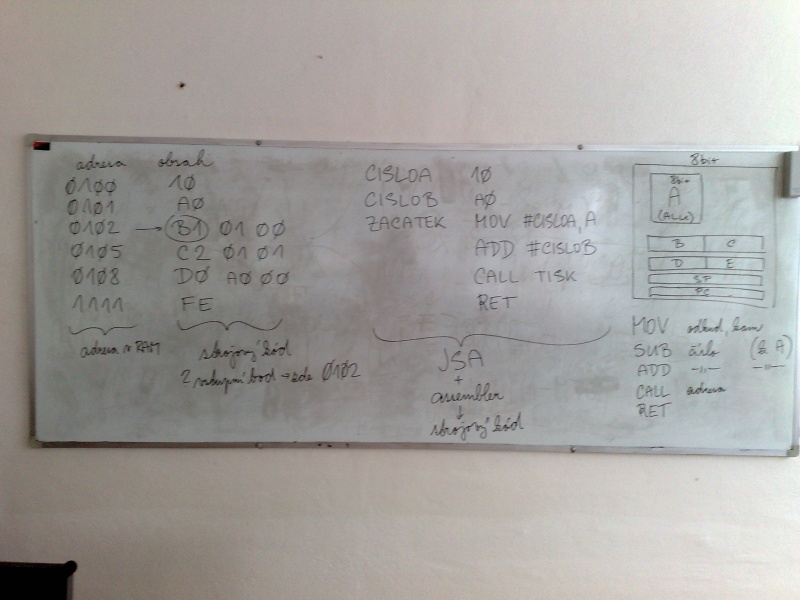 adresa obsah
0100 10
0101 A0
0102 → B1 01 00
0105 C2 01 01
0108 D0 A0 00
1111 FE
adresa v RAM
strojový kód
? vstupní bod → zde 0102
CISLOA 10
CISLOB A0
ZACATEK MOV #CISLOA, A
ADD #CISLOB
CALL TISK
RET
JSA
+
assembler
↓
strojový kód
8bit
8bit
A
B C
D E
SP
PC
MOV odkud, kam
SUB číslo (A)
ADD -"- -"-
CALL adresa
RET